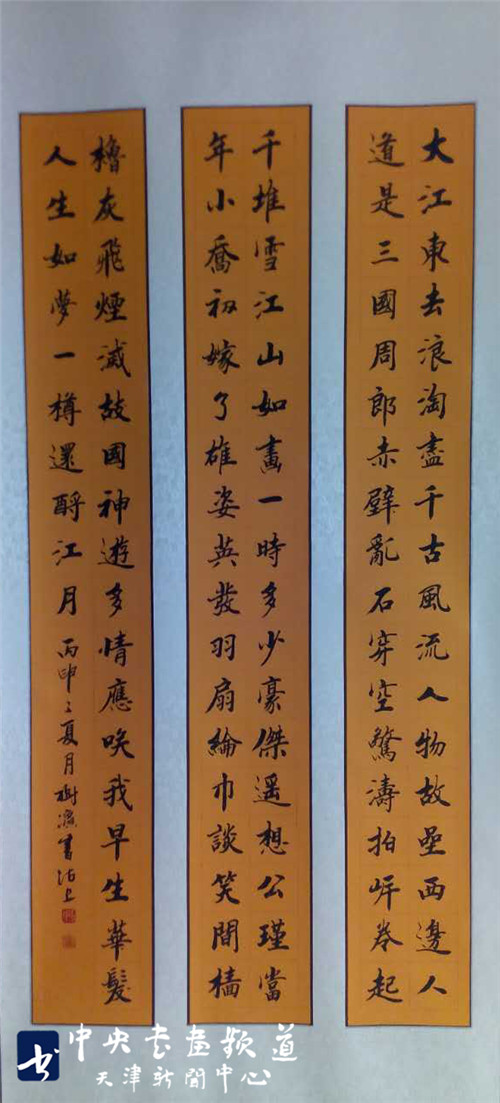 大江東去浪淘盡千古風流人物故壘西邊人
道是三國周郎赤壁亂石穿空驚濤拍岸卷起
千堆雪江山如畫一時多少豪傑遥想公瑾當
年小喬初嫁了雄姿英發羽扇綸巾談笑間檣
櫓灰飛煙滅故國神遊多情應笑我早生華髮
人生如夢一樽還酹江月
丙申之夏月樹濕書沽上
中央书画频道
天津新聞中心